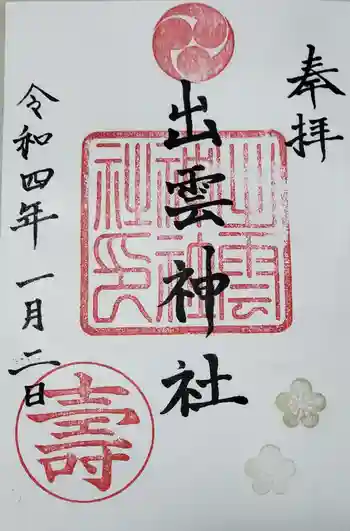 奉拝
出雲神社
出雲神社印
令和四年一月二日
壽